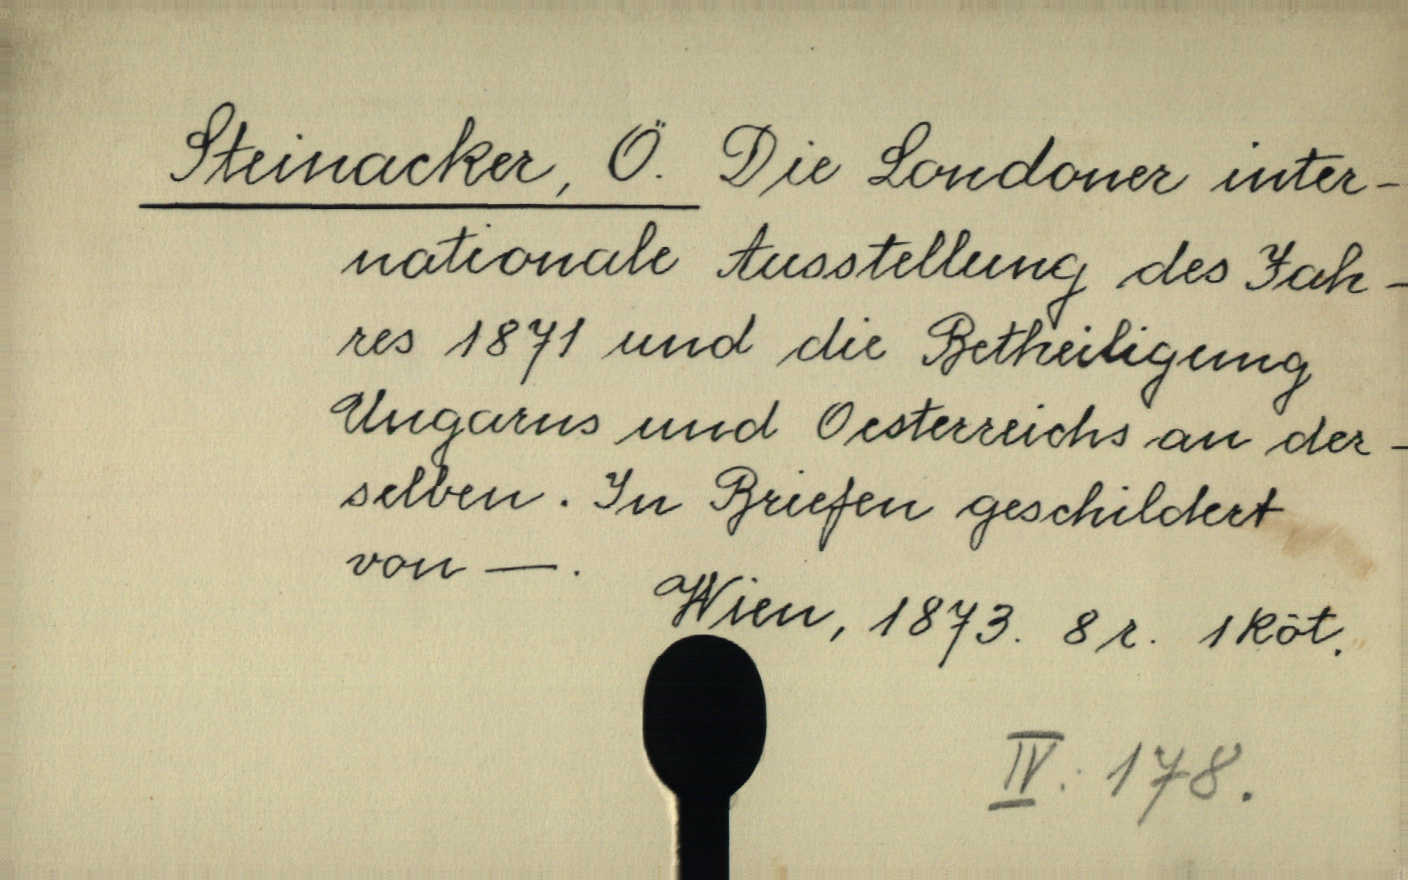 Steinacker, Ö. Die Londoner inter-
nationale Ausstellung des Jah-
res 1871 und die Betheiligung
Ungarns und Oesterreichs an der-
selben. In Briefen geschildert
von —.
Wien, 1873. 8 r. 1 köt.
IV. 178.